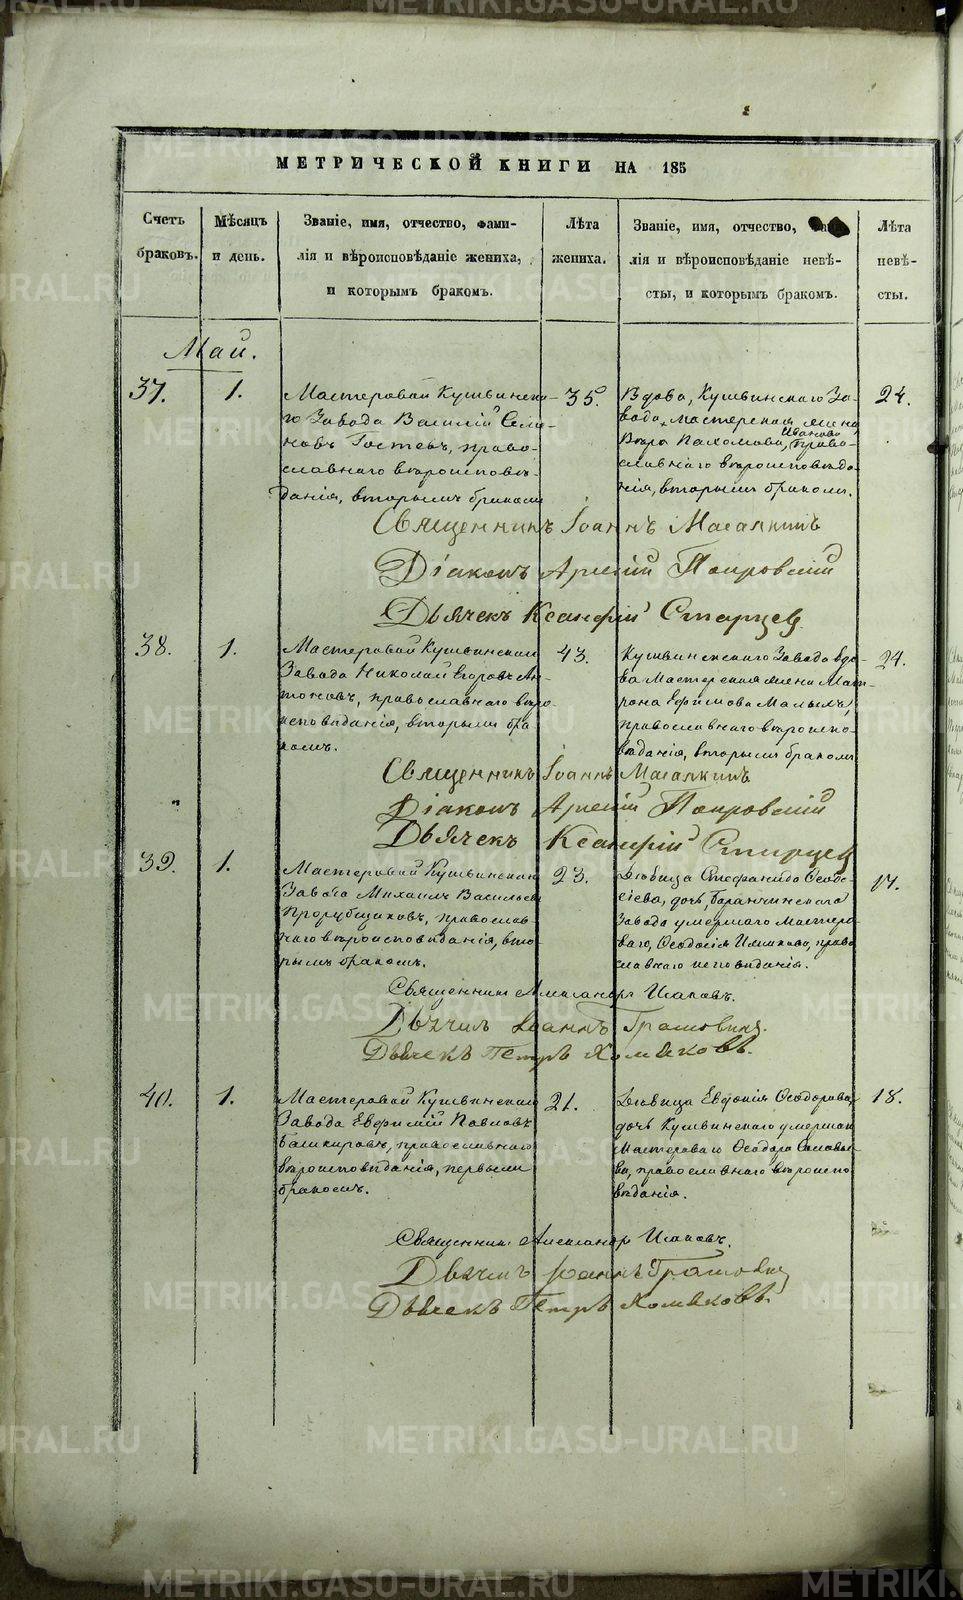 МЕТРИЧЕСКОЙ КНИГИ НА 185
Счетъ браковъ.
Мѣсяцъ и день.
Званіе, имя, отчество, фами-
лія и вѣроисповѣданіе жениха,
и которымъ бракомъ.
Лѣта жениха.
Званіе, имя, отчество,
лія и вѣроисповѣданіе невѣ-
сты, и которымъ бракомъ.
Лѣта невѣ-
сты.
Май.
37.
1.
Мастеровой Кушвинска-
го Завода Василій
Гостевъ, право-
славнаго вѣроисповѣ-
данія, вторымъ бракомъ
35.
Вдова, Кушвинскаго За-
вода, мастерская жена
Иванова
Вѣра Пахомова, право-
славнаго вѣроисповѣда-
нія, вторымъ бракомъ.
24.
Священникъ Іоаннъ
Діаконъ Арсеній
Дьячекъ Ксанфій Старцев
38.
1.
Мастеровой Кушвинскаго
Завода Николай Егоровъ Ан-
тоновъ, православнаго вѣро-
исповѣданія, вторымъ бра-
комъ.
43.
Кушвинскаго Завода вдо-
ва Мастерская жена Мат-
рона Ефимова Малыхъ,
православнаго вѣроиспо-
вѣданія, вторымъ бракомъ
24.
Священникъ Іоаннъ
Діаконъ Арсеній
Дьячекъ Ксанфій Старцев
39.
1.
Мастеровой Кушвинскаго
Завода Михаилъ Васильевъ
Прорубщиковъ, православ-
наго вѣроисповѣданія, вто-
рымъ бракомъ.
23.
Дѣвица Стефанида Ѳеодо-
сіева, дочь, Баранчинскаго
Завода умершаго Мастеро-
ваго, Ѳеодосія право-
славнаго исповѣданія.
17.
Священникъ Александръ
Дьячекъ Іоаннъ
Дьячекъ Петръ Хомяковъ.
40.
1.
Мастеровой Кушвинскаго
Завода Евфимій Павловъ
Башкировъ, православнаго
вѣроисповѣданія, первымъ
бракомъ.
21.
Дѣвица Евфимія Ѳеодорова,
дочь Кушвинскаго умершаго
Мастероваго Ѳеодора Соловье-
ва, православнаго вѣроиспо-
вѣданія.
18.
Священникъ Александръ
Дьячекъ Іоаннъ
Дьячекъ Петръ Хомяковъ.
METRIKI.GASO-URAL.RU